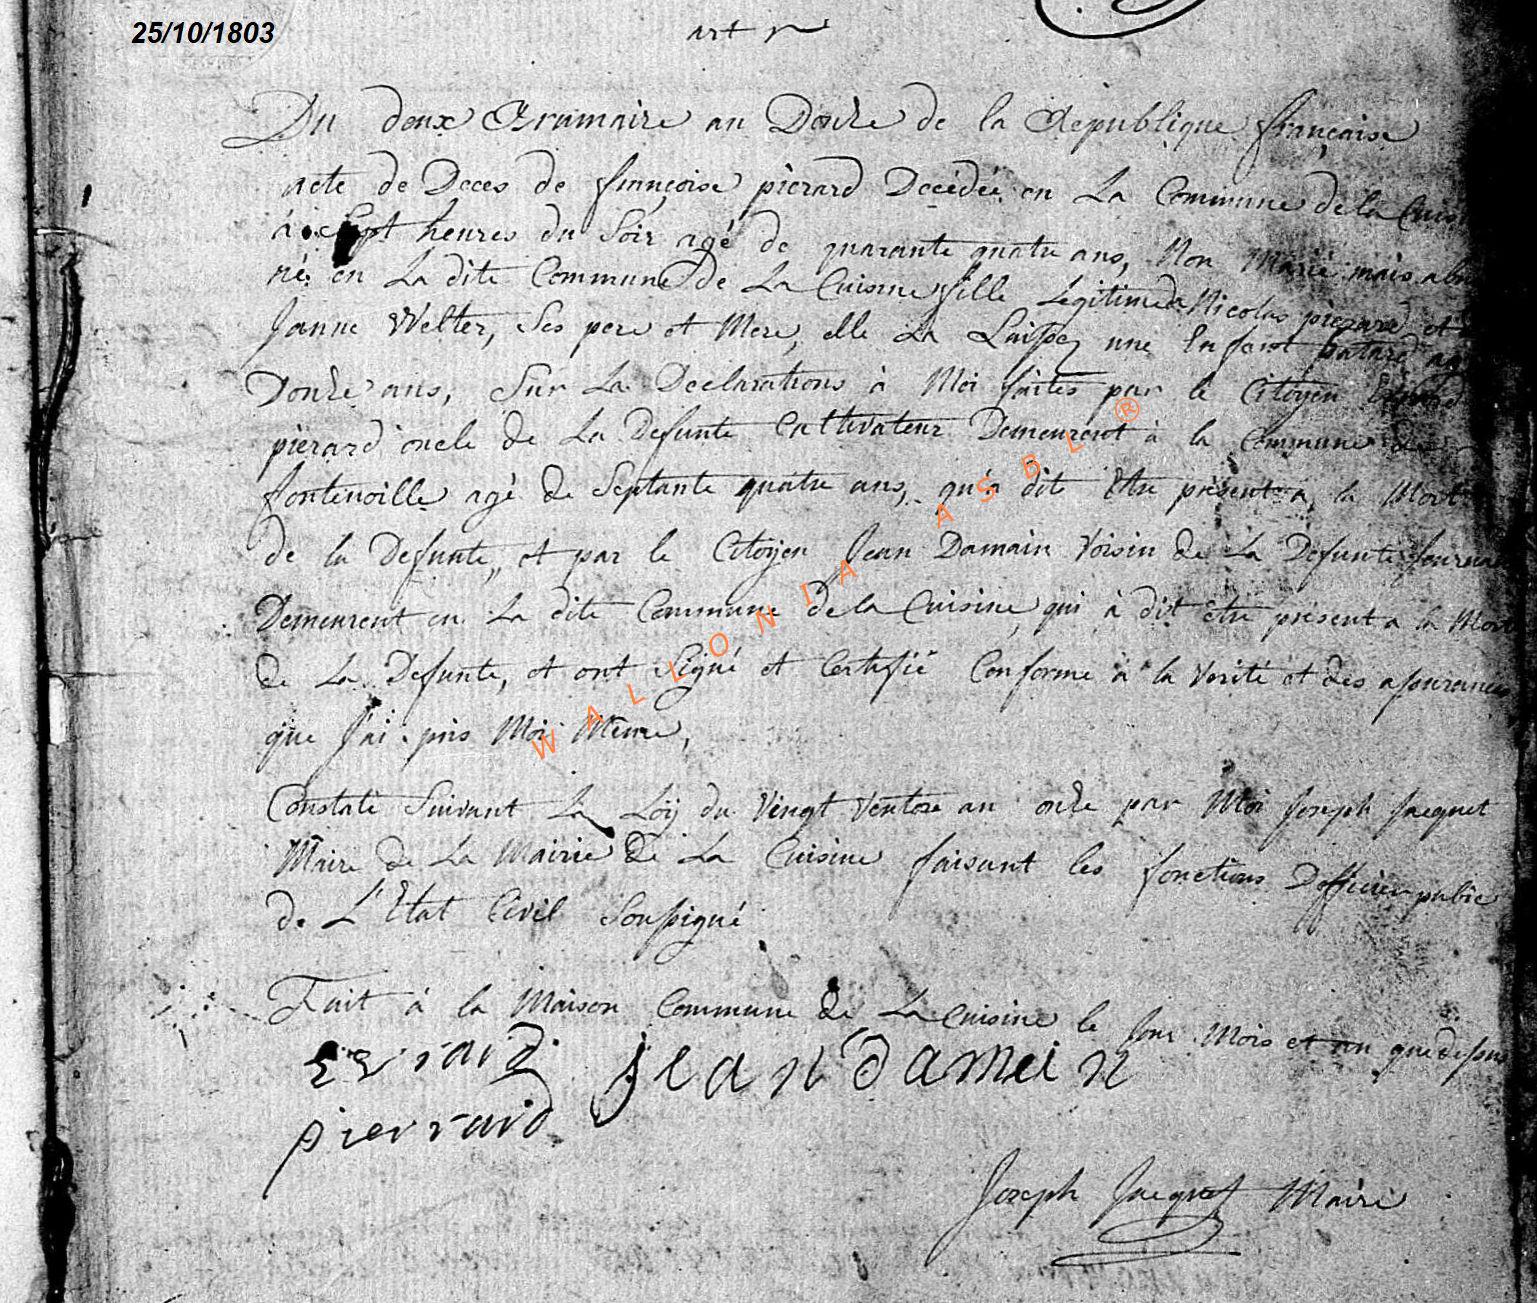 25/10/1803
art
Du deux Brumaire an Douze de la Republique française
acte de Deces de françoise piérard Décédée en La Commune de la Cuis
á Sept heures du Soir agé de quarante quatre ans, Non Marié mais
né en La dite Commune de La Cuisine fille Legitime de Nicolas pierard et
Janne Welter, Ses pere et Mere, elle La Laissez une Enfant batard
Douze ans, Sur La Declarations à Moi faites par le Citoyen Evrard
piérard oncle de La Defunte Cultivateur Demeurent à la Commune de
fontenoille agé de Septante quatre ans, qu'a dit Etre présent a la Mort
de la Defunte, et par le Citoyen Jean Damain Voisin de La Defunte
Demeurent en La dite Commune de la Cuisine, qui à dit Etre présent a la Mort
de La Defunte, et ont Signé et Certifié Conforme à la Verité et des assurances
que J'ai pris Moi Même,
Constaté Suivant La Loÿ du Vingt Ventose an onze par Moi Joseph Jacquet
Maire de La Mairie de La Cuisine faisant les fonctions D'officier public
de L'Etat Civil Soussigné
Fait à la Maison Commune de La Cuisine le Jour Mois et an que dessus
Evrard Jean damein
pierrard
Joseph Jacquet Maire
WALLONIA ASBL ®